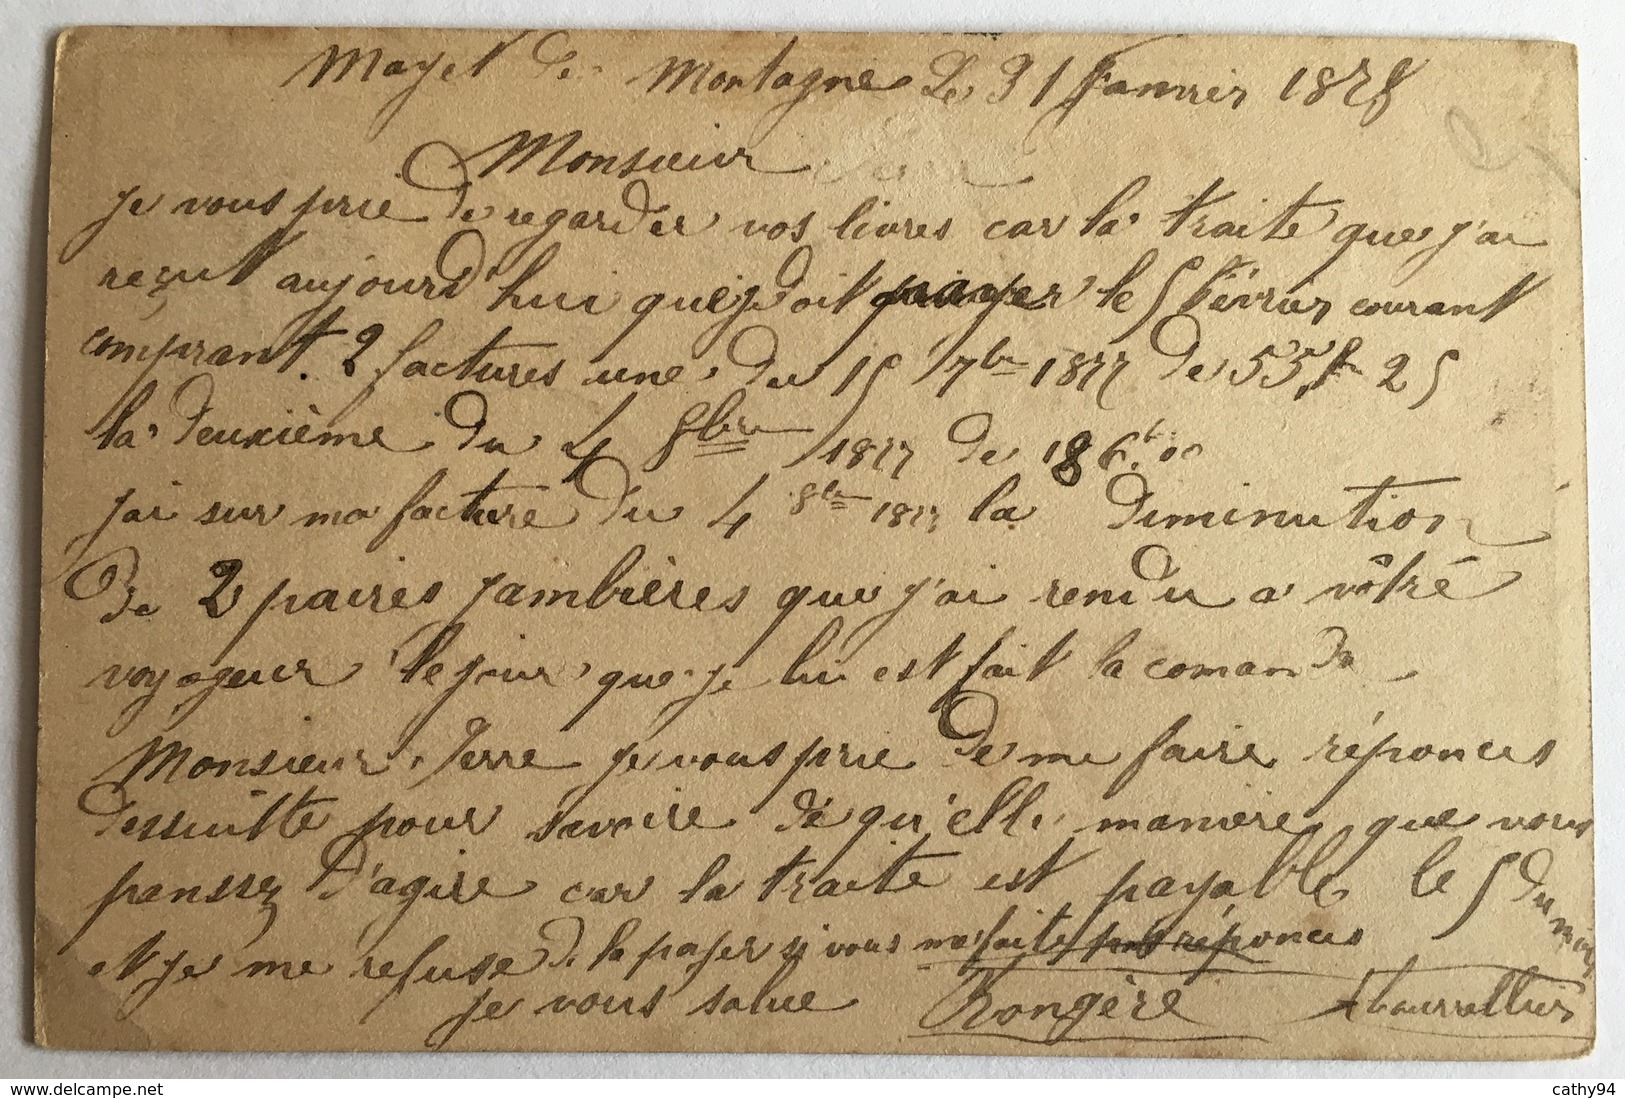 Mayet de Montagne Le 31 Janvier 1878
Monsieur
je vous prie de regarder vos livres car la traite que j'ai
reçut aujourd'hui que j doit payer le 5 Février courant
comprant 2 factures une du 15 7bre 1877 de 55f 25
la deuxième du 4 8bre 1877 de 186f.00
j'ai sur ma facture du 4 8bre 1877 la diminution
de 2 paires jambières que j'ai rendu a vôtré
voyageur le jour que je lui est fait la comande
Monsieur je vous prie de me faire réponces
dessuitte pour savoire de qu'elle manière que vous
panssez d'agire car la traite est payable le 5 du mois
et je me refuse de la payer si vous me faite pas réponces
je vous salue Rongère
cathy94